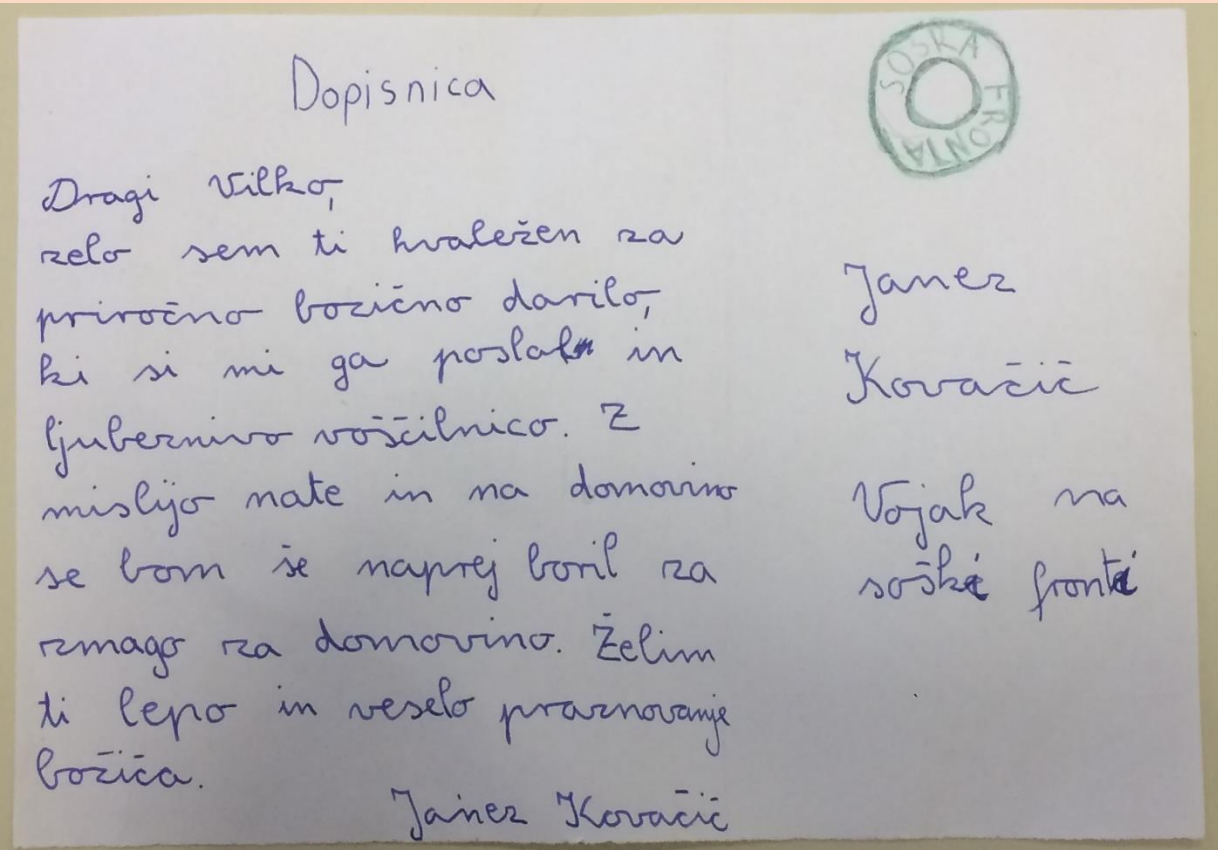 Dopisnica
SOŠKA FRONTA
Dragi Vilko,
zelo sem ti hvaležen za
priročno božično darilo,
ki si mi ga poslal in
ljubeznivo voščilnico. Z
mislijo nate in na domovino
se bom še naprej boril za
zmago za domovino. Želim
ti lepo in veselo praznovanje
božiča.
Janez Kovačič
Janez
Kovačič
Vojak na
soški fronti